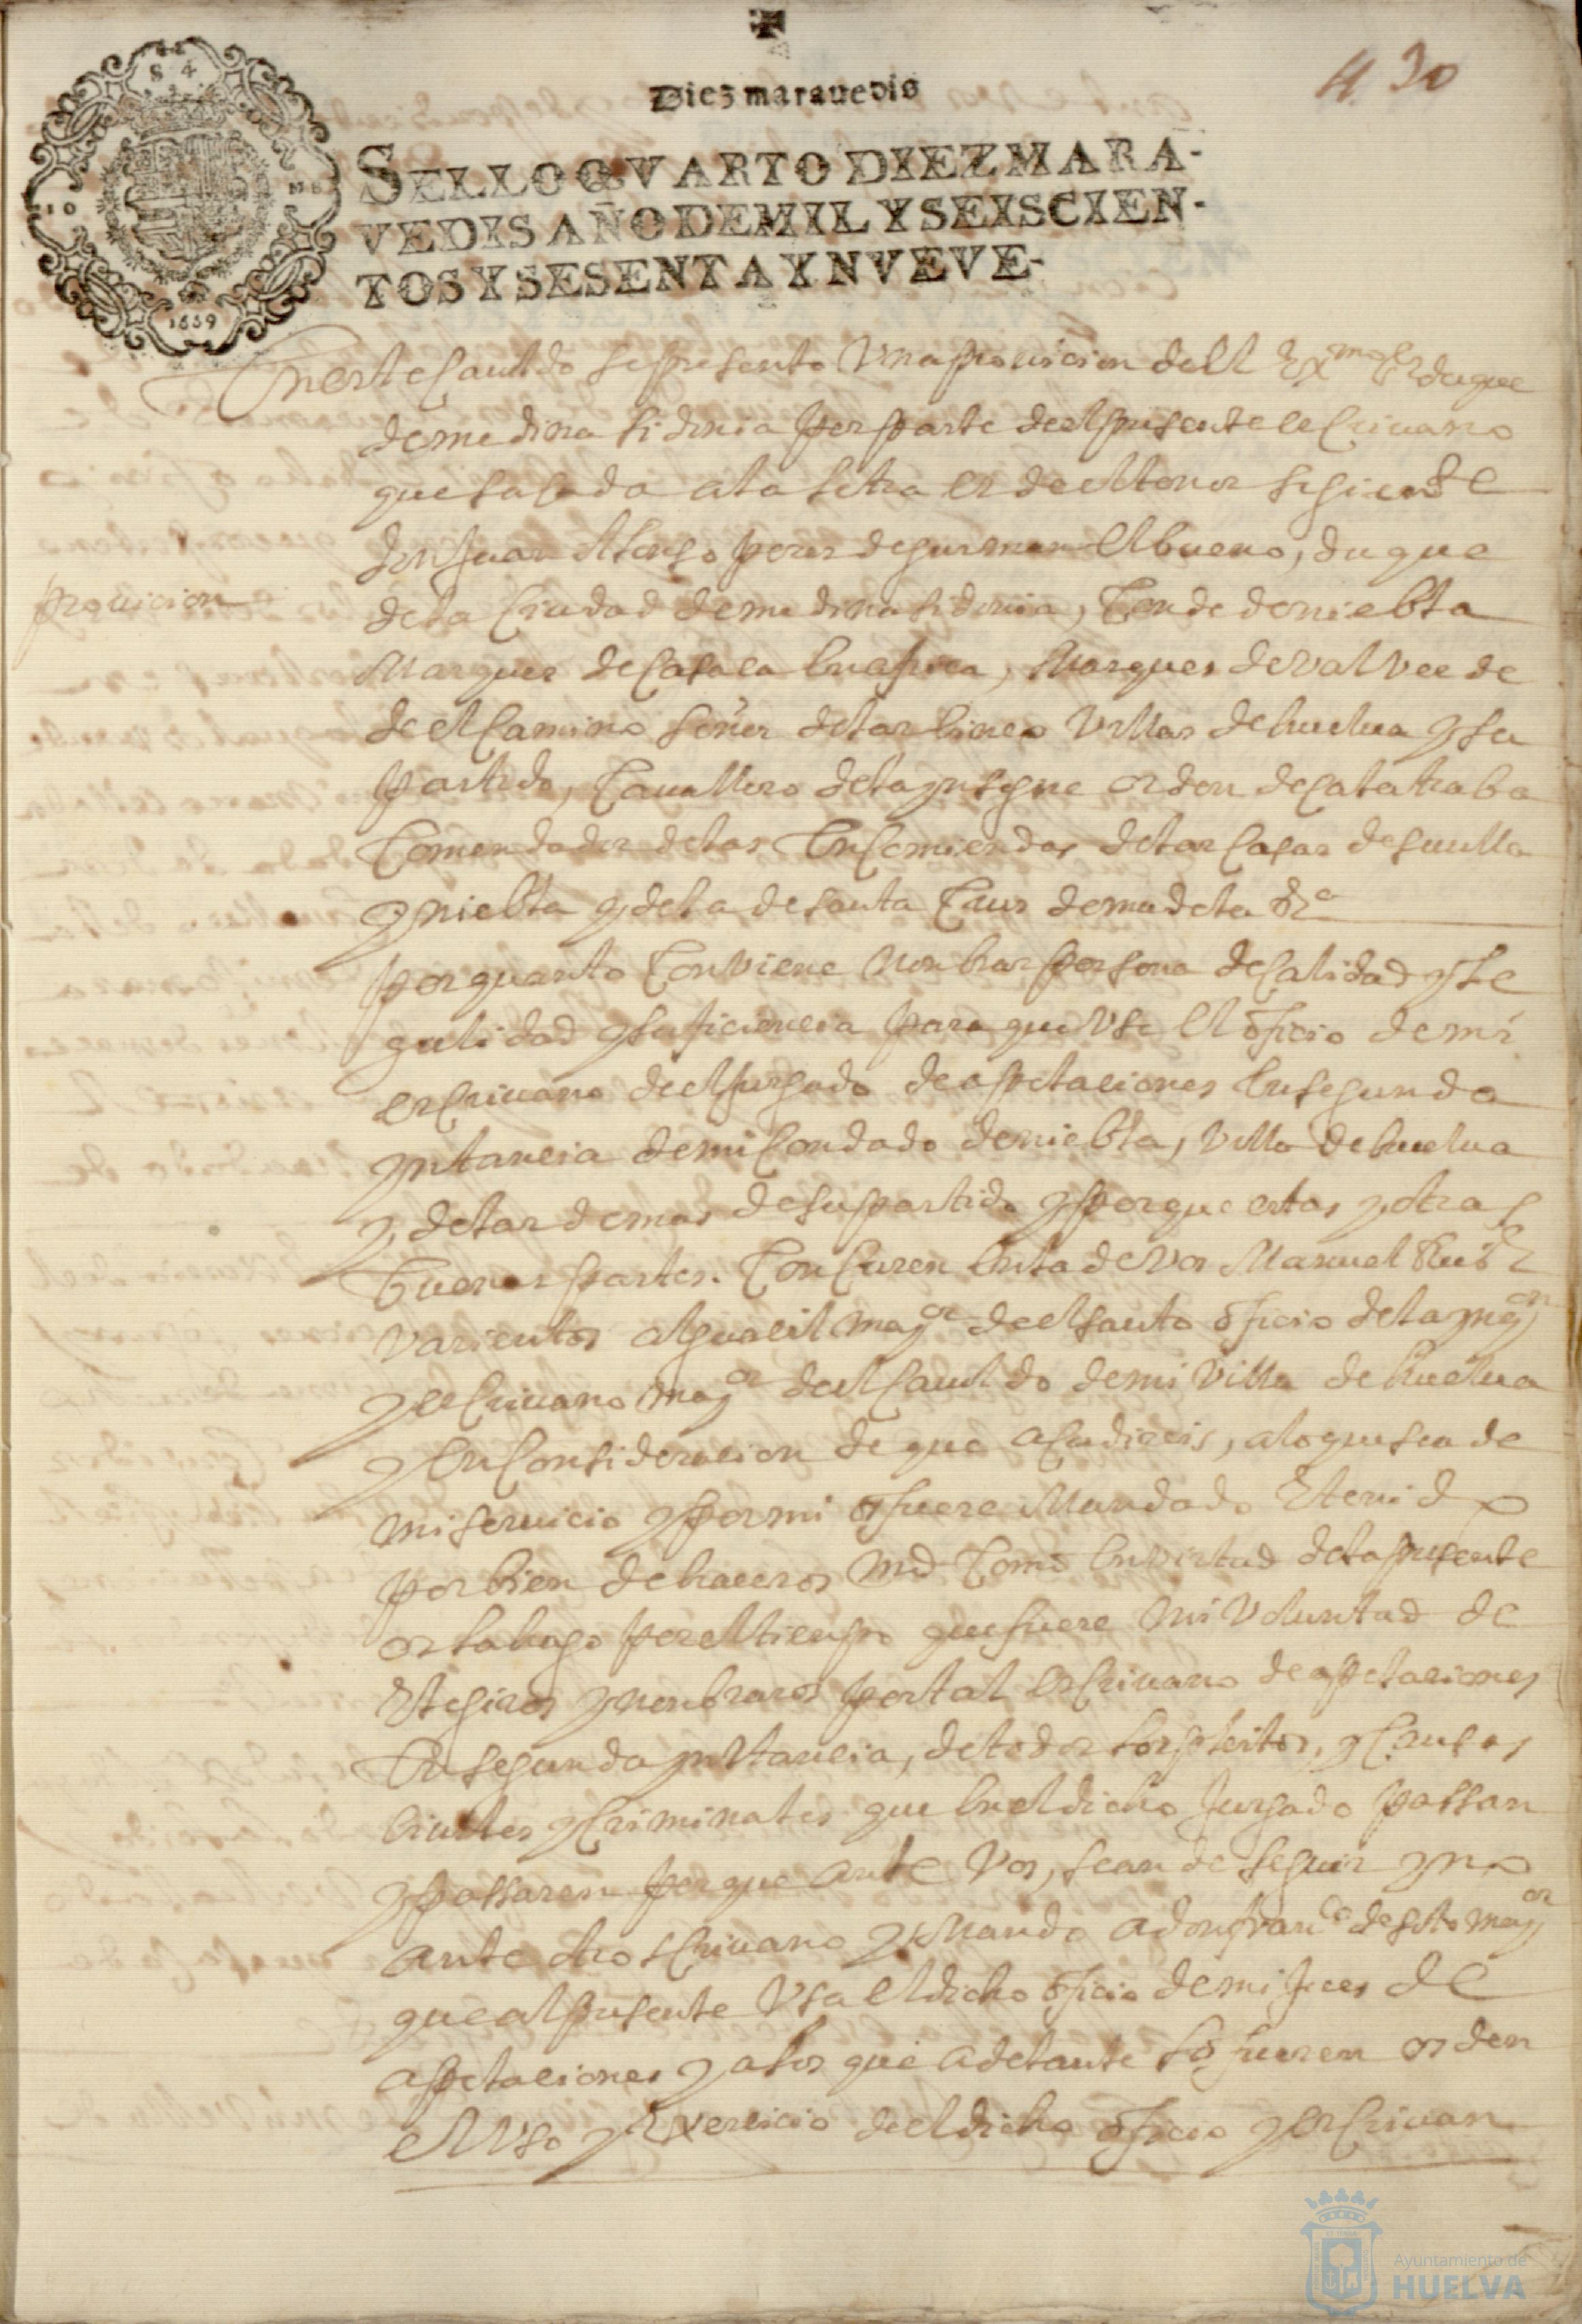 4 30
Diez marauedis
S 4
10 Ms
1669
SELLO QVARTO DIEZ MARA-
VEDIS AÑO DE MIL Y SEISCIEN-
TOS Y SESENTA Y NVEVE-
En este Cauildo se presento Vna prouicion dell Exmo Sr duque
de medina sidonia por parte deel presente escriuano
que sacada a la letra es de el tenor siguiente
prouicion
don Juan Alonso peres de gusman el bueno, duque
de la Ciudad de medina sidonia, Conde de niebla
Marques de Casasa en africa, Marques de Valverde
de el Camino señor de las cinco Villas de huelua y su
partido, Cauallero de la ynsigne orden de Calatraba
Comendador de las Encomiendas de las Casas de seuilla
y niebla y de la de santa Crus de mudela &a
por quanto Conviene Nonbrar persona de Calidad y le
galidad y suficiencia para que Vse el oficio de mi
escriuano deel jusgado de apelaciones en segunda
ynstancia de mi Condado de niebla, Villa de huelua
y de las demas de su partido y porque estas y otras
buenas partes. Concuren en la de Vos Manuel Ruis
Varientos alguacil mayor deel santo oficio de la ynqon
y escriuano mayor deel Cauildo de mi Villa de huelua
y en Consideracion de que acudireis, a lo que sea de
mi seruicio y por mi os fuere Mandado E tenido
por bien de haceros Md Como en virtud de la presente
os la hago por el tienpo que fuere mi Voluntad de
Elegiros y nonbraros por tal escriuano de apelaciones
En segunda ynstancia, de todos los pleitos, y Causas
ciuiles y Criminales que en el dicho Jusgado passan
y passaren porque ante Vos, sean de seguir y no
ante otro escriuano y Mando a don franco de soto mayor
que al presente Vsa el dicho oficio de mi Jues de
apelaciones y a los que adelante lo fueren os den
el Vso y Exercicio deel dicho oficio y escriuan
Ayuntamiento de
HUELVA